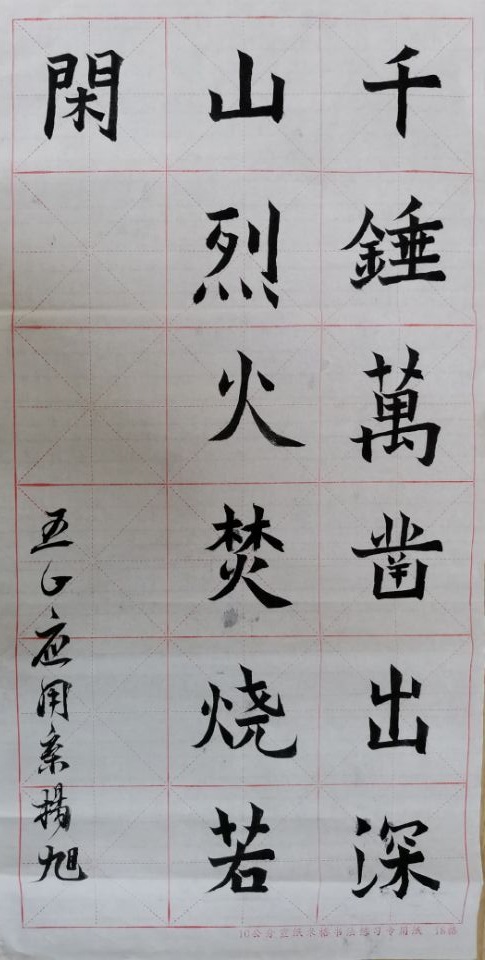 千錘萬凿出深
山烈火焚烧若
閑
应用系楊旭
10公分宣纸米格书法练习专用纸 18格